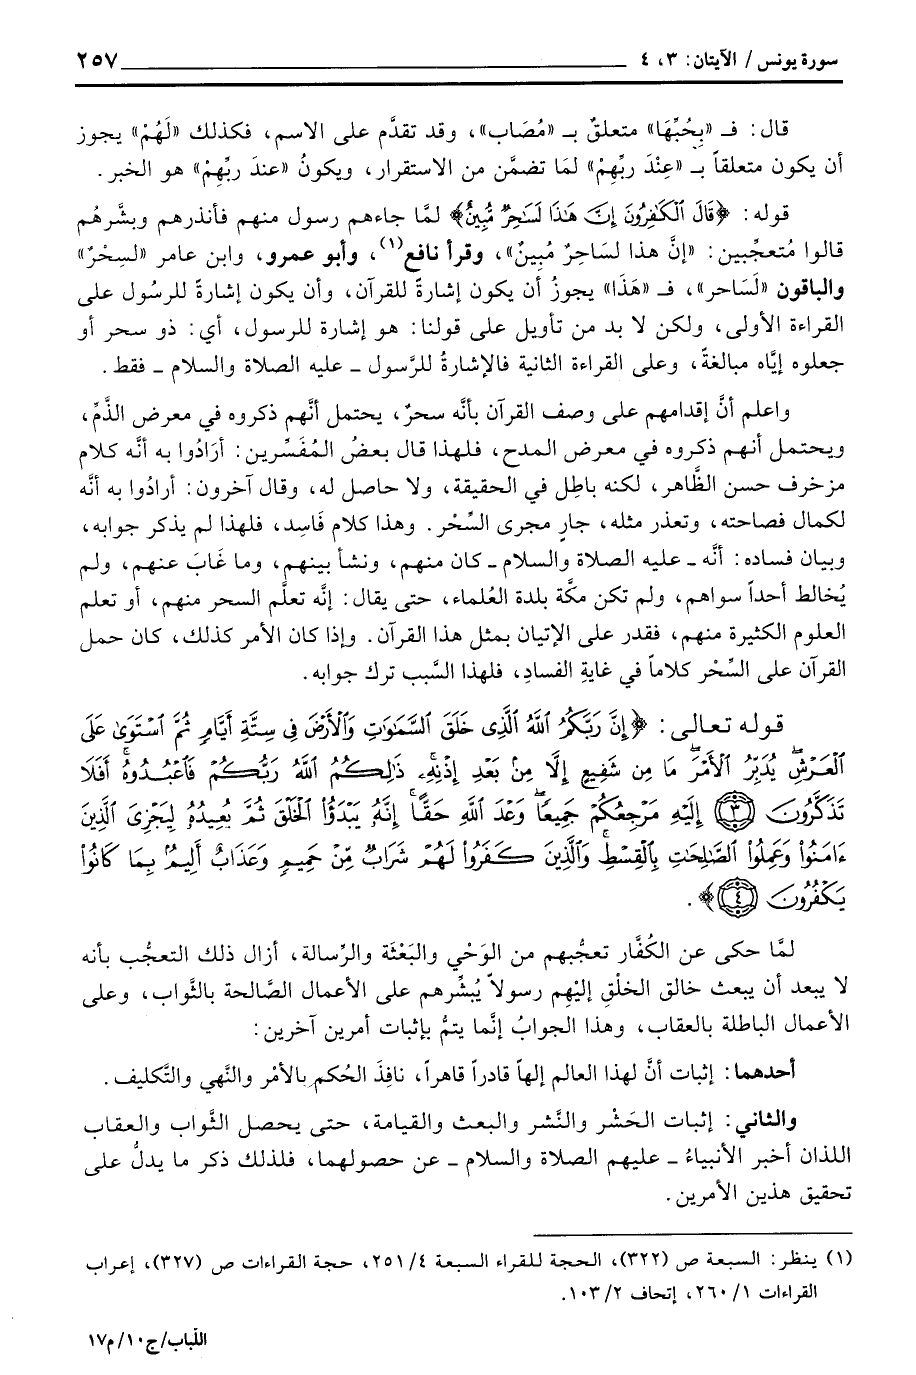 سورة يونس / الآيتان: ٣، ٤ ٢٥٧
قال: فـ «بِحُبِّهَا» متعلقٌ بـ «مُصَاب»، وقد تقدَّم على الاسم، فكذلك «لَهُمْ» يجوز
أن يكون متعلقاً بـ «عِنْدَ ربِّهِمْ» لمَا تضمَّن من الاستقرار، ويكونُ «عندَ ربِّهِمْ» هو الخبر.
قوله: ﴿قَالَ ٱلْكَٰفِرُونَ إِنَّ هَٰذَا لَسَٰحِرٌ مُّبِينٌ﴾ لمَّا جاءهم رسول منهم فأنذرهم وبشَّرهُم
قالوا مُتعجِّبين: «إنَّ هذا لسَاحِرٌ مُبِينٌ»، وقرأ نافع(١)، وأبو عمرو، وابن عامر «لَسِحْرٌ»
والباقون «لَسَاحر»، فـ «هَذَا» يجوزُ أن يكون إشارةً للقرآن، وأن يكون إشارةً للرسُول على
القراءة الأولى، ولكن لا بد من تأويل على قولنا: هو إشارة للرسول، أي: ذو سحر أو
جعلوه إيَّاه مبالغةً، وعلى القراءة الثانية فالإشارةُ للرَّسول ـ عليه الصلاة والسلام ـ فقط.
واعلم أنَّ إقدامهم على وصف القرآن بأنَّه سحرٌ، يحتمل أنَّهم ذكروه في معرض الذَّمِّ،
ويحتمل أنهم ذكروه في معرض المدح، فلهذا قال بعضُ المُفَسِّرين: أرَادُوا به أنَّه كلام
مزخرف حسن الظَّاهر، لكنه باطِل في الحقيقة، ولا حاصل له، وقال آخرون: أرادُوا به أنَّه
لكمال فصاحته، وتعذر مثله، جارٍ مجرى السِّحْر. وهذا كلام فَاسِد، فلهذا لم يذكر جوابه،
وبيان فساده: أنَّه ـ عليه الصلاة والسلام ـ كان منهم، ونشأ بينهم، وما غَابَ عنهم، ولم
يُخالط أحداً سواهم، ولم تكن مكَّة بلدة العُلماء، حتى يقال: إنَّه تعلَّم السحر منهم، أو تعلم
العلوم الكثيرة منهم، فقدر على الإتيان بمثل هذا القرآن. وإذا كان الأمر كذلك، كان حمل
القرآن على السِّحْر كلاماً في غايةِ الفسادِ، فلهذا السَّبب ترك جوابه.
قوله تعالى: ﴿إِنَّ رَبَّكُمُ ٱللَّهُ ٱلَّذِى خَلَقَ ٱلسَّمَٰوَٰتِ وَٱلْأَرْضَ فِى سِتَّةِ أَيَّامٍ ثُمَّ ٱسْتَوَىٰ عَلَى
ٱلْعَرْشِ يُدَبِّرُ ٱلْأَمْرَ مَا مِن شَفِيعٍ إِلَّا مِنۢ بَعْدِ إِذْنِهِۦ ذَٰلِكُمُ ٱللَّهُ رَبُّكُمْ فَٱعْبُدُوهُ أَفَلَا
تَذَكَّرُونَ ٣ إِلَيْهِ مَرْجِعُكُمْ جَمِيعًا وَعْدَ ٱللَّهِ حَقًّا إِنَّهُۥ يَبْدَؤُا۟ ٱلْخَلْقَ ثُمَّ يُعِيدُهُۥ لِيَجْزِىَ ٱلَّذِينَ
ءَامَنُوا۟ وَعَمِلُوا۟ ٱلصَّٰلِحَٰتِ بِٱلْقِسْطِ وَٱلَّذِينَ كَفَرُوا۟ لَهُمْ شَرَابٌ مِّنْ حَمِيمٍ وَعَذَابٌ أَلِيمٌۢ بِمَا كَانُوا۟
يَكْفُرُونَ ٤﴾.
لمَّا حكى عن الكُفَّار تعجُّبهم من الوَحْي والبَعْثَة والرِّسالة، أزال ذلك التعجُّب بأنه
لا يبعد أن يبعث خالق الخلْقِ إليْهِم رسولاً يُبشِّرهم على الأعمال الصَّالحة بالثَّواب، وعلى
الأعمال الباطلة بالعقاب، وهذا الجوابُ إنَّما يتمُّ بإثبات أمرين آخرين:
أحدهما: إثبات أنَّ لهذا العالم إلهاً قادراً قاهراً، نافِذَ الحُكمِ بالأمْر والنَّهي والتَّكليف.
والثاني: إثبات الحَشْر والنَّشر والبعث والقيامة، حتى يحصل الثَّواب والعقاب
اللذان أخبر الأنبياءُ ـ عليهم الصلاة والسلام ـ عن حصولهما، فلذلك ذكر ما يدلُّ على
تحقيق هذين الأمرين.
(١) ينظر: السبعة ص (٣٢٢)، الحجة للقراء السبعة ٢٥١/٤، حجة القراءات ص (٣٢٧)، إعراب
القراءات ٢٦٠/١، إتحاف ١٠٣/٢.
اللباب/ج١٠/م١٧